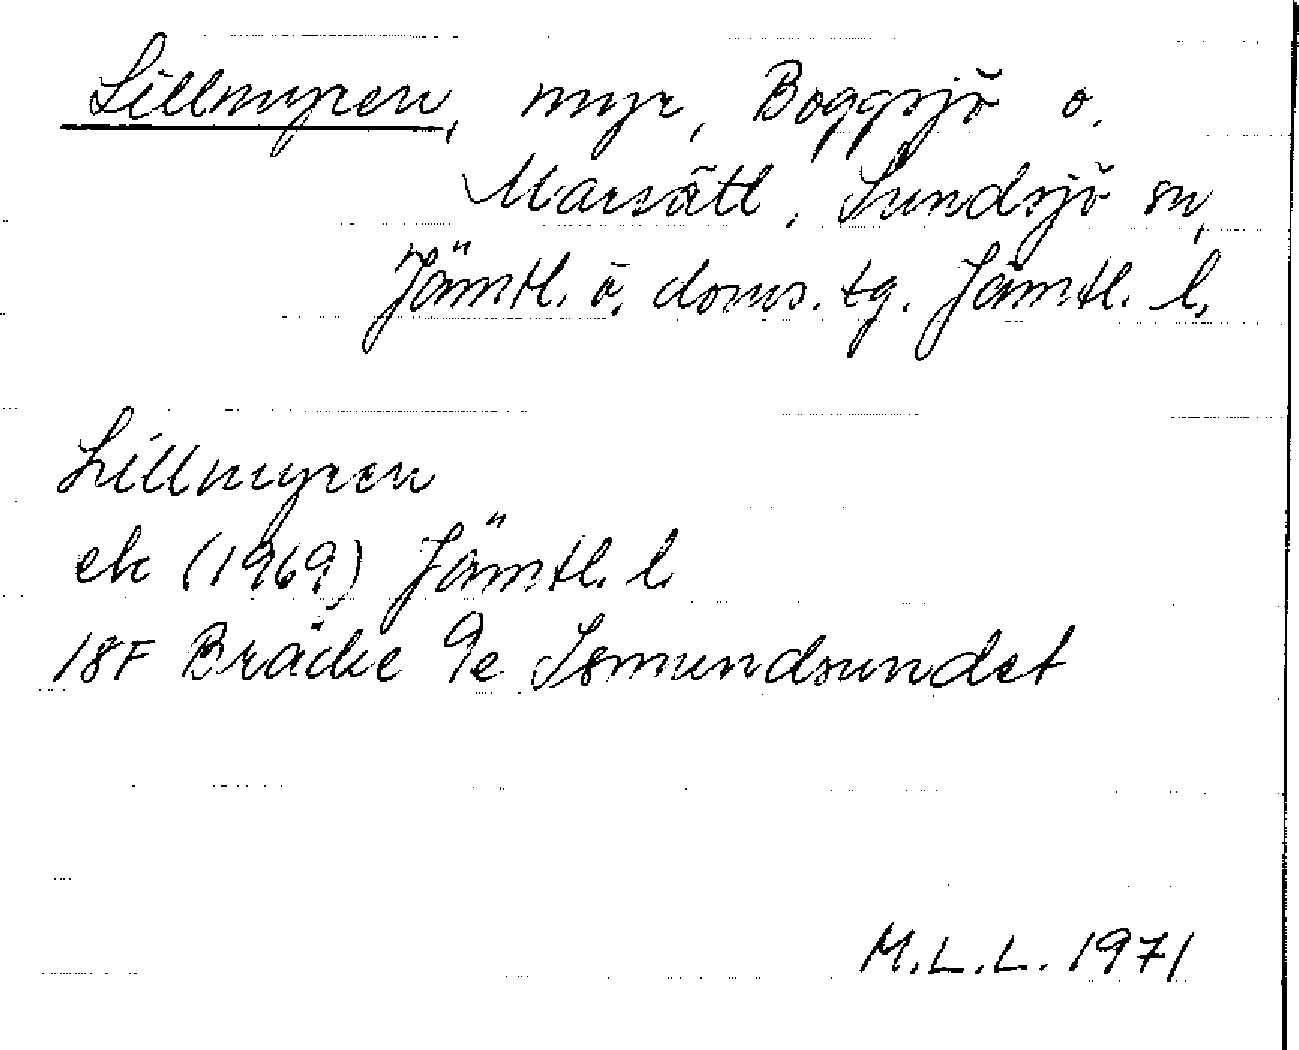 Lillmyren, myr, Boggsjö o.
Marsätt, Sundsjö sn,
Jämtl. ö. doms. tg. Jämtl. l.
Lillmyren
ek (1969) Jämtl. l.
18F Bräcke 9e Ismundsundet
M.L.L. 1971